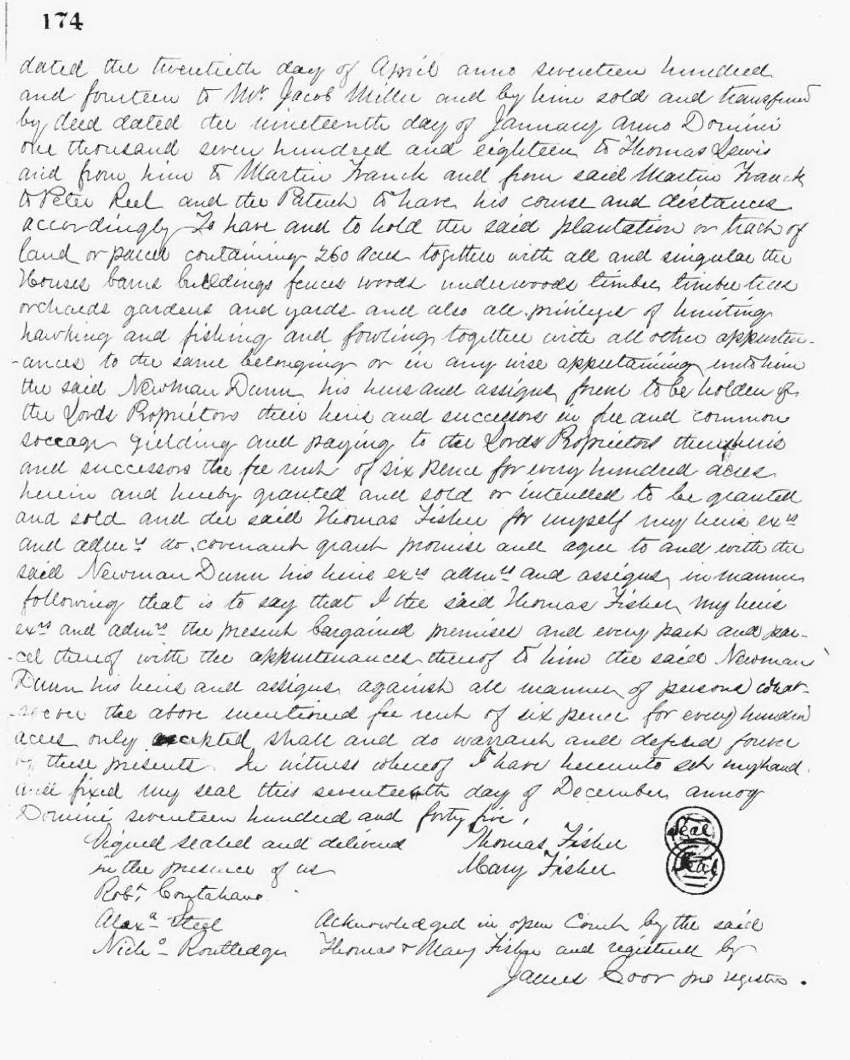 174
dated the twentieth day of April anno seventeen hundred
and fourteen to Mr Jacob Miller and by him sold and transferred
by deed dated the nineteenth day of January anno Domini
one thousand seven hundred and eighteen to Thomas Lewis
and from him to Martin Franck and from said Martin Franck
to Peter Reel and the Patent to have his course and distances
accordingly To have and to hold the said plantation or track of
land or parcel containing 260 acres together with all and singular the
Houses barns buildings fences woods underwoods timber timber trees
orchards gardens and yards and also all privilege of hunting
hawking and fishing and fowling together with all other appurten-
-ances to the same belonging or in any wise appertaining unto him
the said Newman Dunn his heirs and assigns to be holden of
the Lords Proprietors their heirs and successors in fee and common
soccage yielding and paying to the Lords Proprietors their heirs
and successors the fee rent of six pence for every hundred acres
herein and hereby granted and sold or intended to be granted
and sold and the said Thomas Fisher for myself my heirs exrs
and admrs do covenant grant promise and agree to and with the
said Newman Dunn his heirs exrs admrs and assigns in manner
following that is to say that I the said Thomas Fisher my heirs
exrs and admrs the present bargained premises and every part and par-
-cel thereof with the appurtenances thereof to him the said Newman
Dunn his heirs and assigns against all manner of persons what-
-soever the above mentioned fee rent of six pence for every hundred
acres only excepted shall and do warrant and defend forever
by these presents In witness whereof I have hereunto set my hand
and fixed my seal this seventeenth day of December annoq
Domini seventeen hundred and forty five.
Signed sealed and delivered Thomas Fisher Seal
in the presence of us Mary Fisher Seal
Robt
Alexa Steel Acknowledged in open Court by the said
Nicho Routledge Thomas & Mary Fisher and registered by
James Coor register.